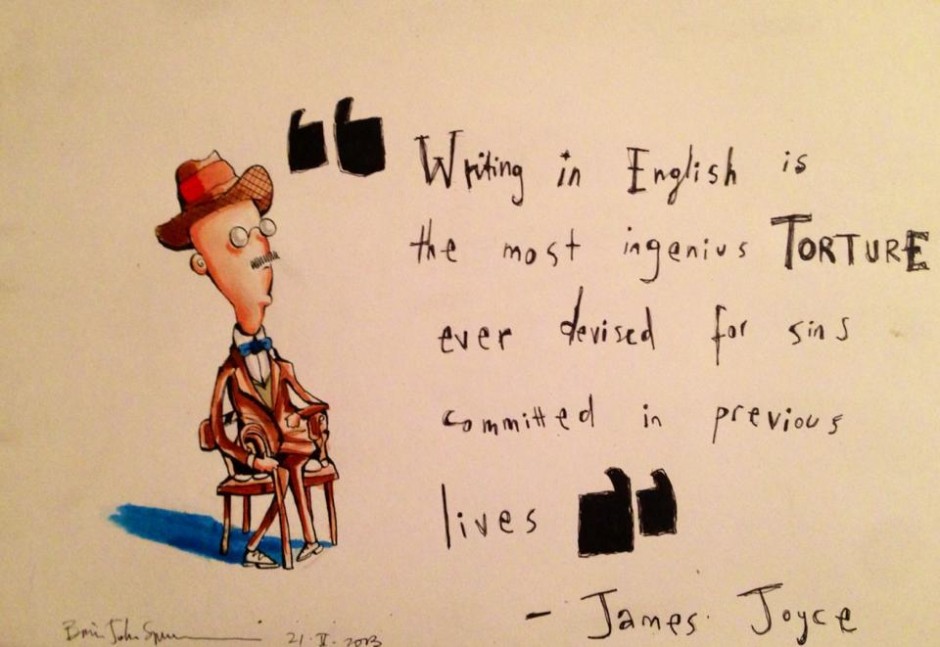 “Writing in English is
the most ingenius TORTURE
ever devised for sins
committed in previous
lives”
- James Joyce
John 21·V·2013